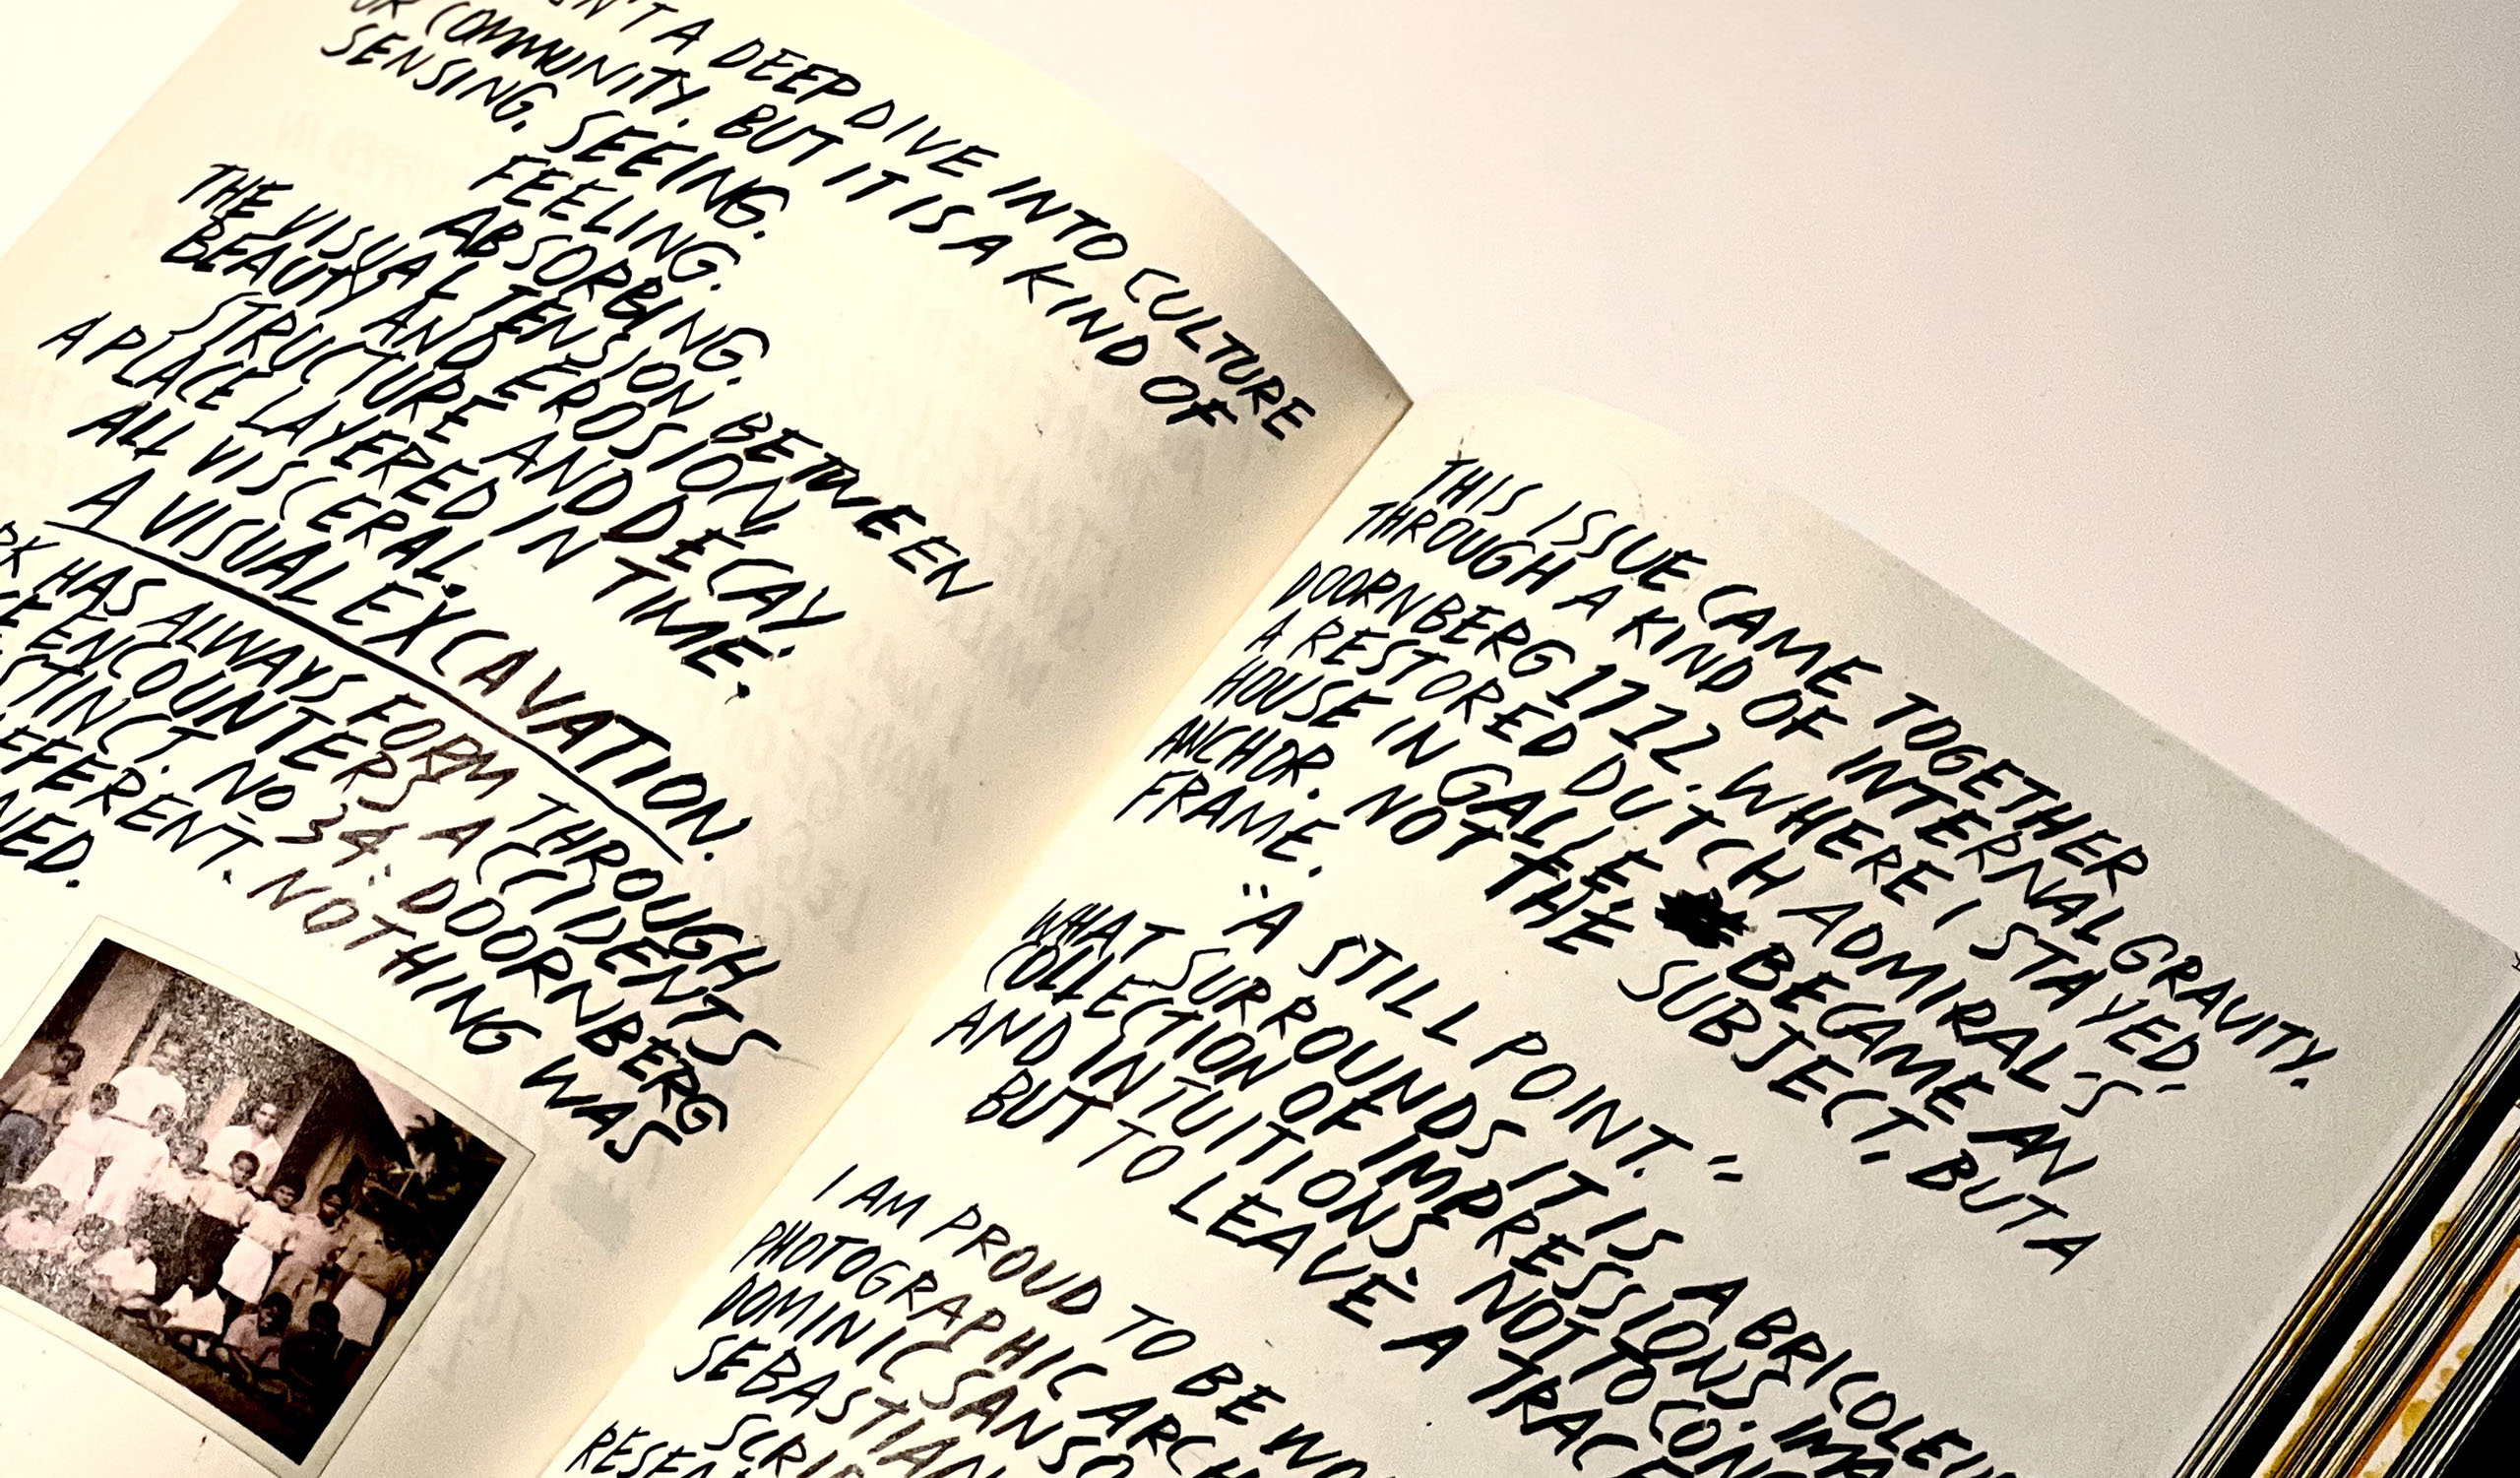 A DEEP DIVE INTO CULTURE
OR COMMUNITY. BUT IT IS A KIND OF
SENSING. SEEING.
FEELING.
ABSORBING.
THE VISUAL TENSION BETWEEN
BEAUTY AND EROSION
STRUCTURE AND DECAY.
A PLACE LAYERED IN TIME.
ALL VISCERAL.
A VISUAL EXCAVATION.
HAS ALWAYS FORM THROUGH
ENCOUNTERS ACCIDENTS
NO 34: DOORNBERG
NOTHING WAS
THIS ISSUE CAME TOGETHER
THROUGH A KIND OF INTERNAL GRAVITY.
DOORNBERG 1712. WHERE I STAYED.
A RESTORED DUTCH ADMIRAL'S
HOUSE IN GALLE. BECAME AN
ANCHOR. NOT THE SUBJECT. BUT A
FRAME.
"A STILL POINT."
WHAT SURROUNDS IT IS A
COLLECTION OF IMPRESSIONS.
AND INTUITIONS. NOT TO
BUT TO LEAVE A TRACE
I AM PROUD TO BE
PHOTOGRAPHIC
DOMINIC
SEBASTIAN